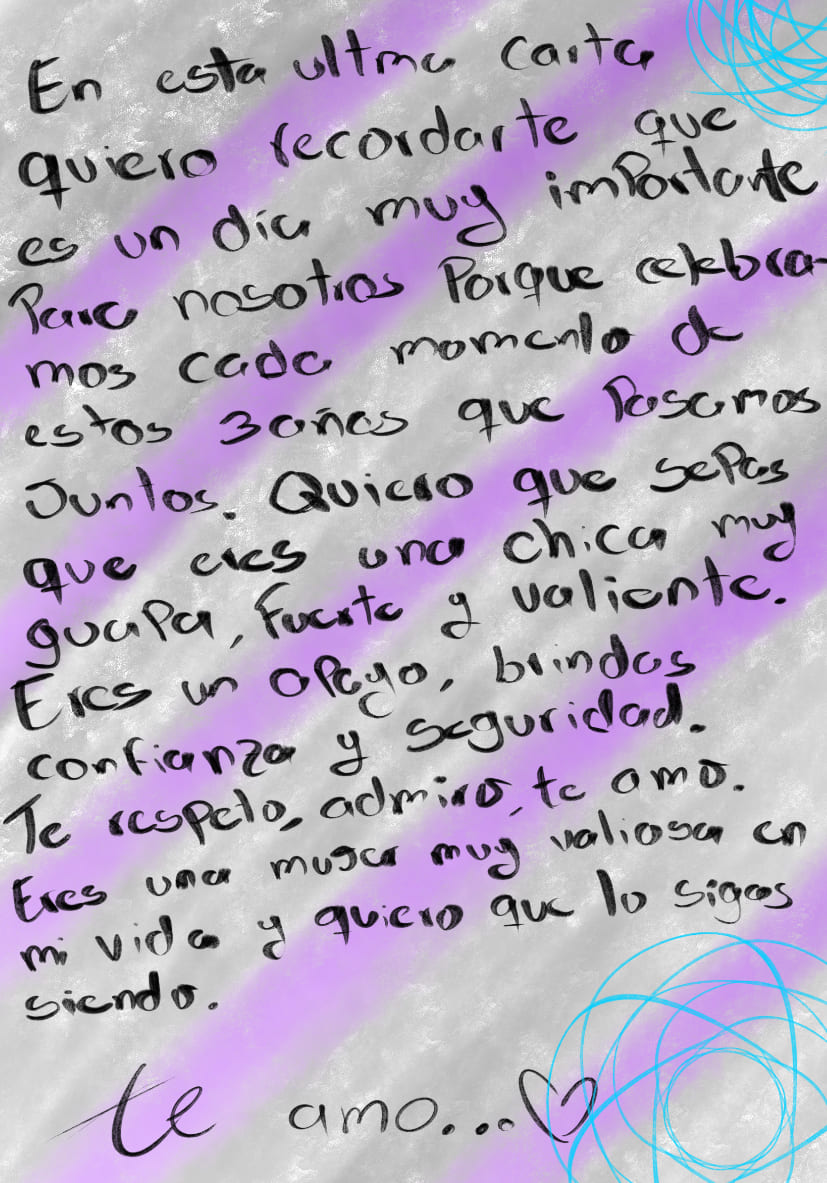 En esta ultma carta
quiero recordarte que
es un día muy importante
Para nosotros Porque celebra-
mos cada momento de
estos 3 años que Pasamos
Juntos. Quiero que sepas
que eres una chica muy
guapa, Fuerte y valiente.
Eres un apoyo, brindas
confianza y seguridad.
Te respeto, admiro, te amo.
Eres una mujer muy valiosa en
mi vida y quiero que lo sigas
siendo.
te amo...♡